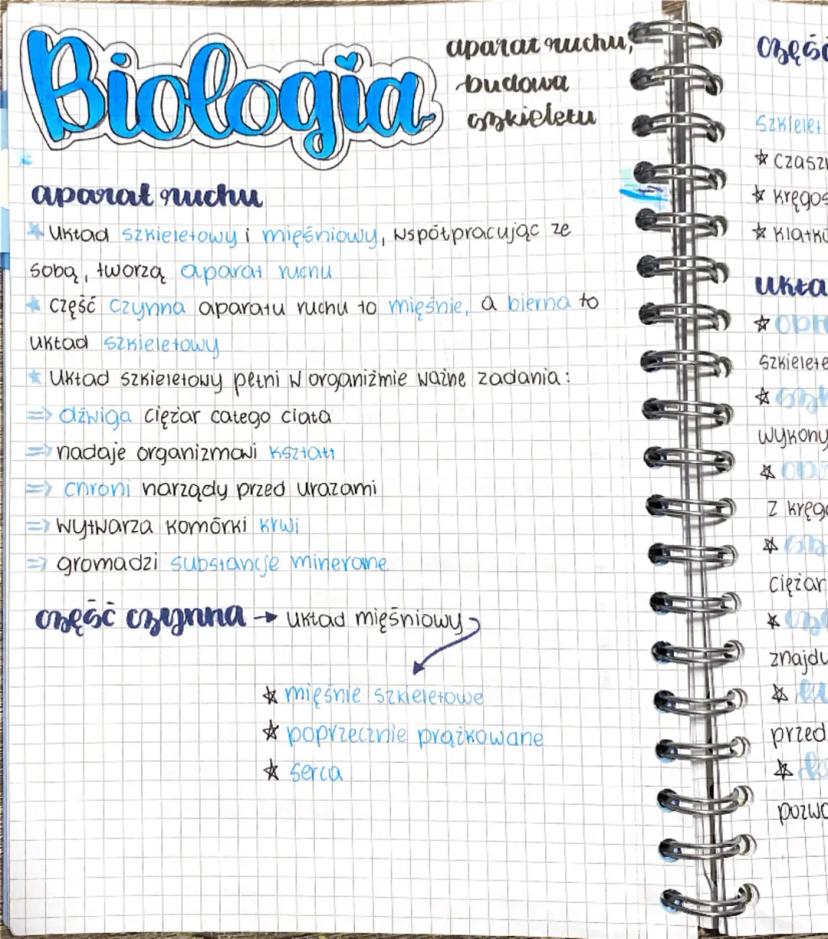 Biologia
aparat ruchu,
budowa
szkieletu
aparat ruchu
Układ szkieletowy i mięśniowy, współpracując ze
sobą, tworzą aparat ruchu
część czynna aparatu ruchu to mięśnie, a bierna to
układ szkieletowy
Układ szkieletowy pełni w organizmie ważne zadania:
=> dźwiga ciężar całego ciała
=> nadaje organizmowi kształt
=> chroni narządy przed urazami
=> wytwarza komórki krwi
=> gromadzi substancje mineralne
część czynna → układ mięśniowy
☆ mięśnie szkieletowe
☆ poprzecznie prążkowane
☆ serca
część
szkielet
☆ czasz
☆ kręgos
☆ klatk
ukła
szkielete
wykony
z kręg
ciężar
znajdu
przed
pozwo